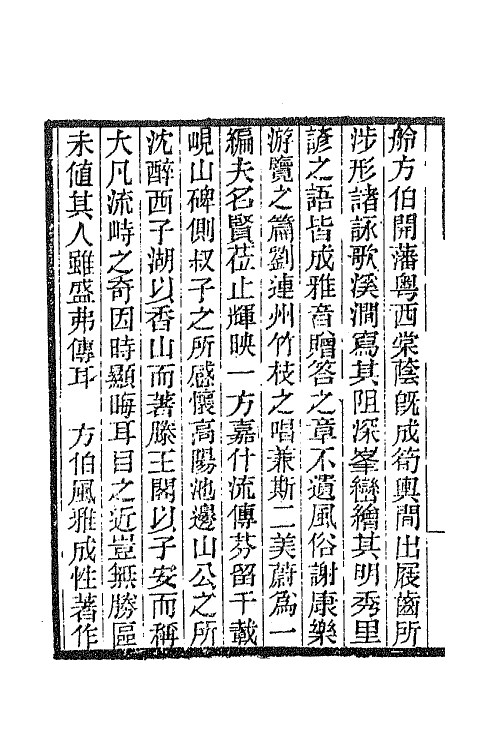 舲方伯開藩粤西棠蔭旣成筍輿間出屐齒所
涉形諸詠歌溪澗寫其阻深峯巒繪其明秀里
諺之語皆成雅音贈答之章不遺風俗謝康樂
游覽之篇劉連州竹枝之唱兼斯二美蔚爲一
編夫名賢莅止輝映一方嘉什流傳芬留千載
峴山碑側叔子之所感懷高陽池邊山公之所
沈醉西子湖以香山而著滕王閣以子安而稱
大凡流峙之奇因時顯晦耳目之近豈無勝區
未値其人雖盛弗傳耳　方伯風雅成性著作